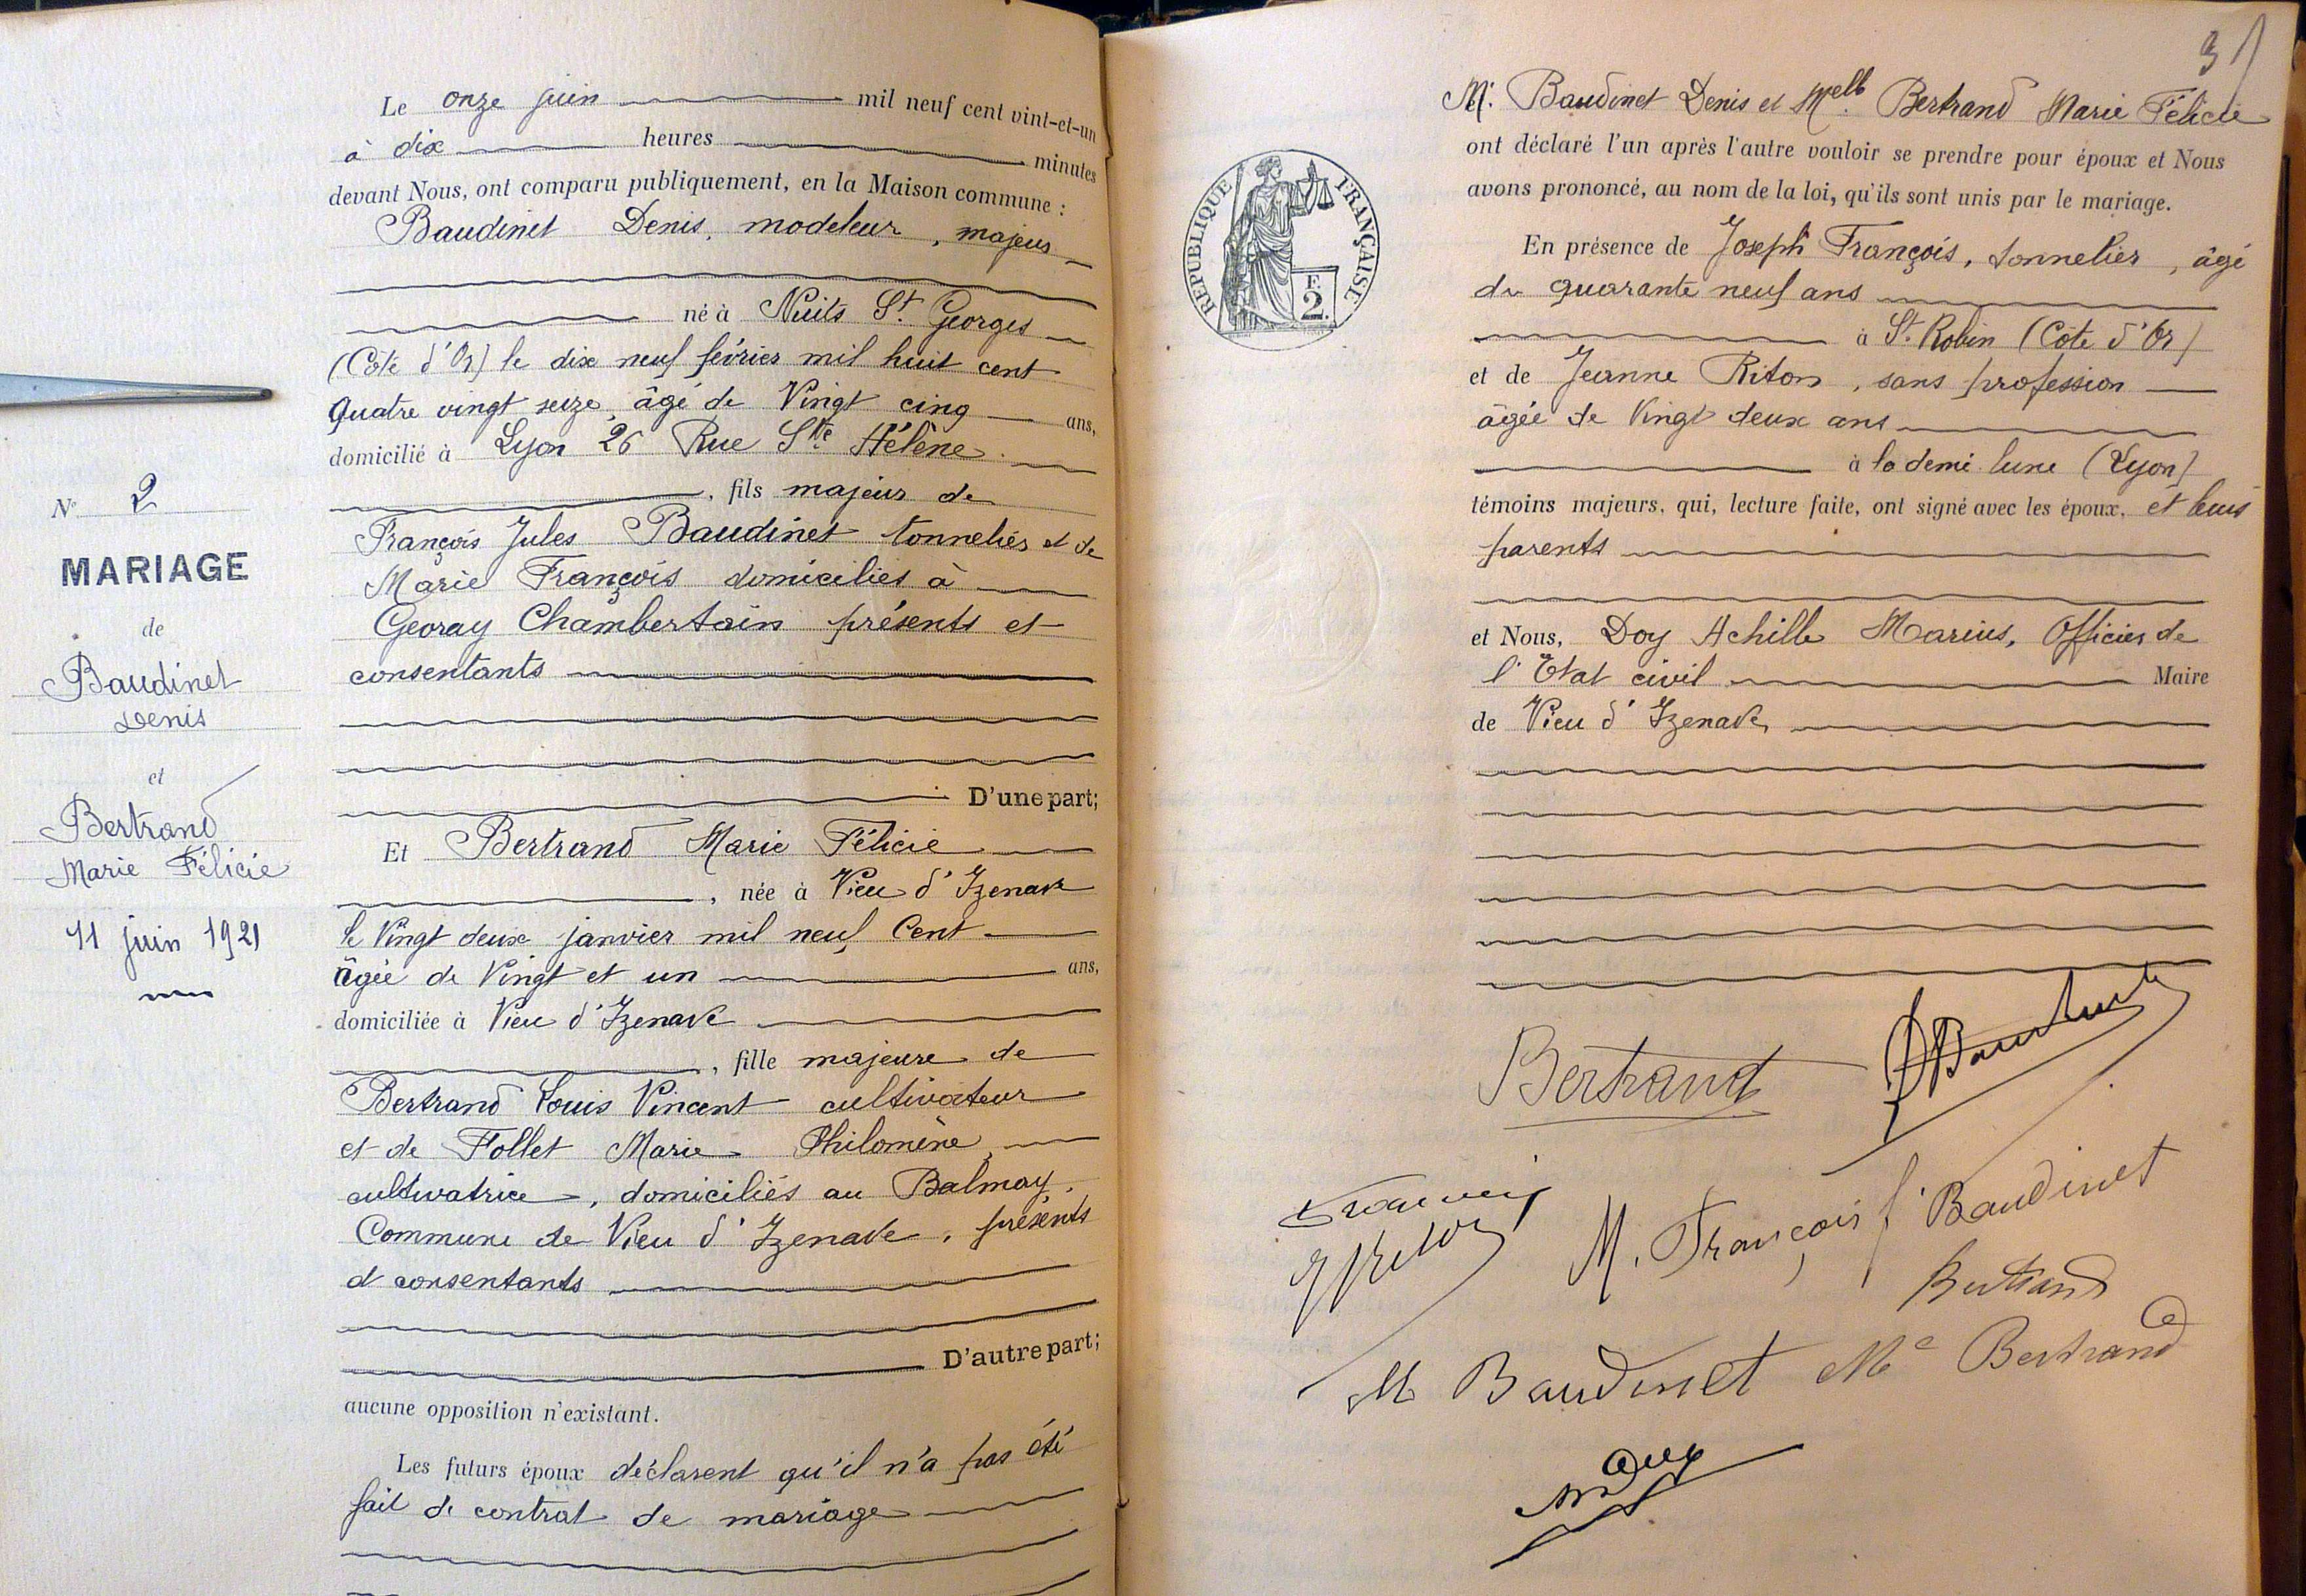 N° 2
MARIAGE
de
Baudinet
Denis
et
Bertrand
Marie Félicie
11 juin 1921
Le onze juin mil neuf cent vint-et-un
à dix heures minutes
devant Nous, ont comparu publiquement, en la Maison commune :
Baudinet Denis, modeleur, majeur
né à Nuits St. Georges
(Côte d'Or) le dix neuf février mil huit cent
quatre vingt seize, âgé de Vingt cinq ans,
domicilié à Lyon 26 Rue Ste Hélène
, fils majeur de
François Jules Baudinet tonnelier et de
Marie François domiciliés à
Gevray Chambertain présents et
consentants
D'une part;
Et Bertrand Marie Félicie
, née à Vieu d'Izenave
le Vingt deux janvier mil neuf Cent
âgée de Vingt et un ans,
domiciliée à Vieu d'Izenave
, fille majeure de
Bertrand Louis Vincent cultivateur
et de Follet Marie Philomène,
cultivatrice, domiciliés au Balmay,
Commune de Vieu d'Izenave, présents
et consentants
D'autre part;
aucune opposition n'existant.
Les futurs époux déclarent qu'il n'a pas été
fait de contrat de mariage
3
Mr. Baudinet Denis et Melle Bertrand Marie Félicie
ont déclaré l'un après l'autre vouloir se prendre pour époux et Nous
avons prononcé, au nom de la loi, qu'ils sont unis par le mariage.
RÉPUBLIQUE FRANÇAISE
F.
2.
En présence de Joseph François, tonnelier, âgé
de quarante neuf ans
à St. Robin (Côte d'Or)
et de Jeanne Riton, sans profession
âgée de Vingt deux ans
à la demi lune (Lyon)
témoins majeurs, qui, lecture faite, ont signé avec les époux, et leurs
parents
et Nous, Doy Achille Marius, Officier de
l'Etat civil Maire
de Vieu d'Izenave
Bertrand
François
M. François f. Baudinet
Bertrand
M Baudinet Me Bertrand